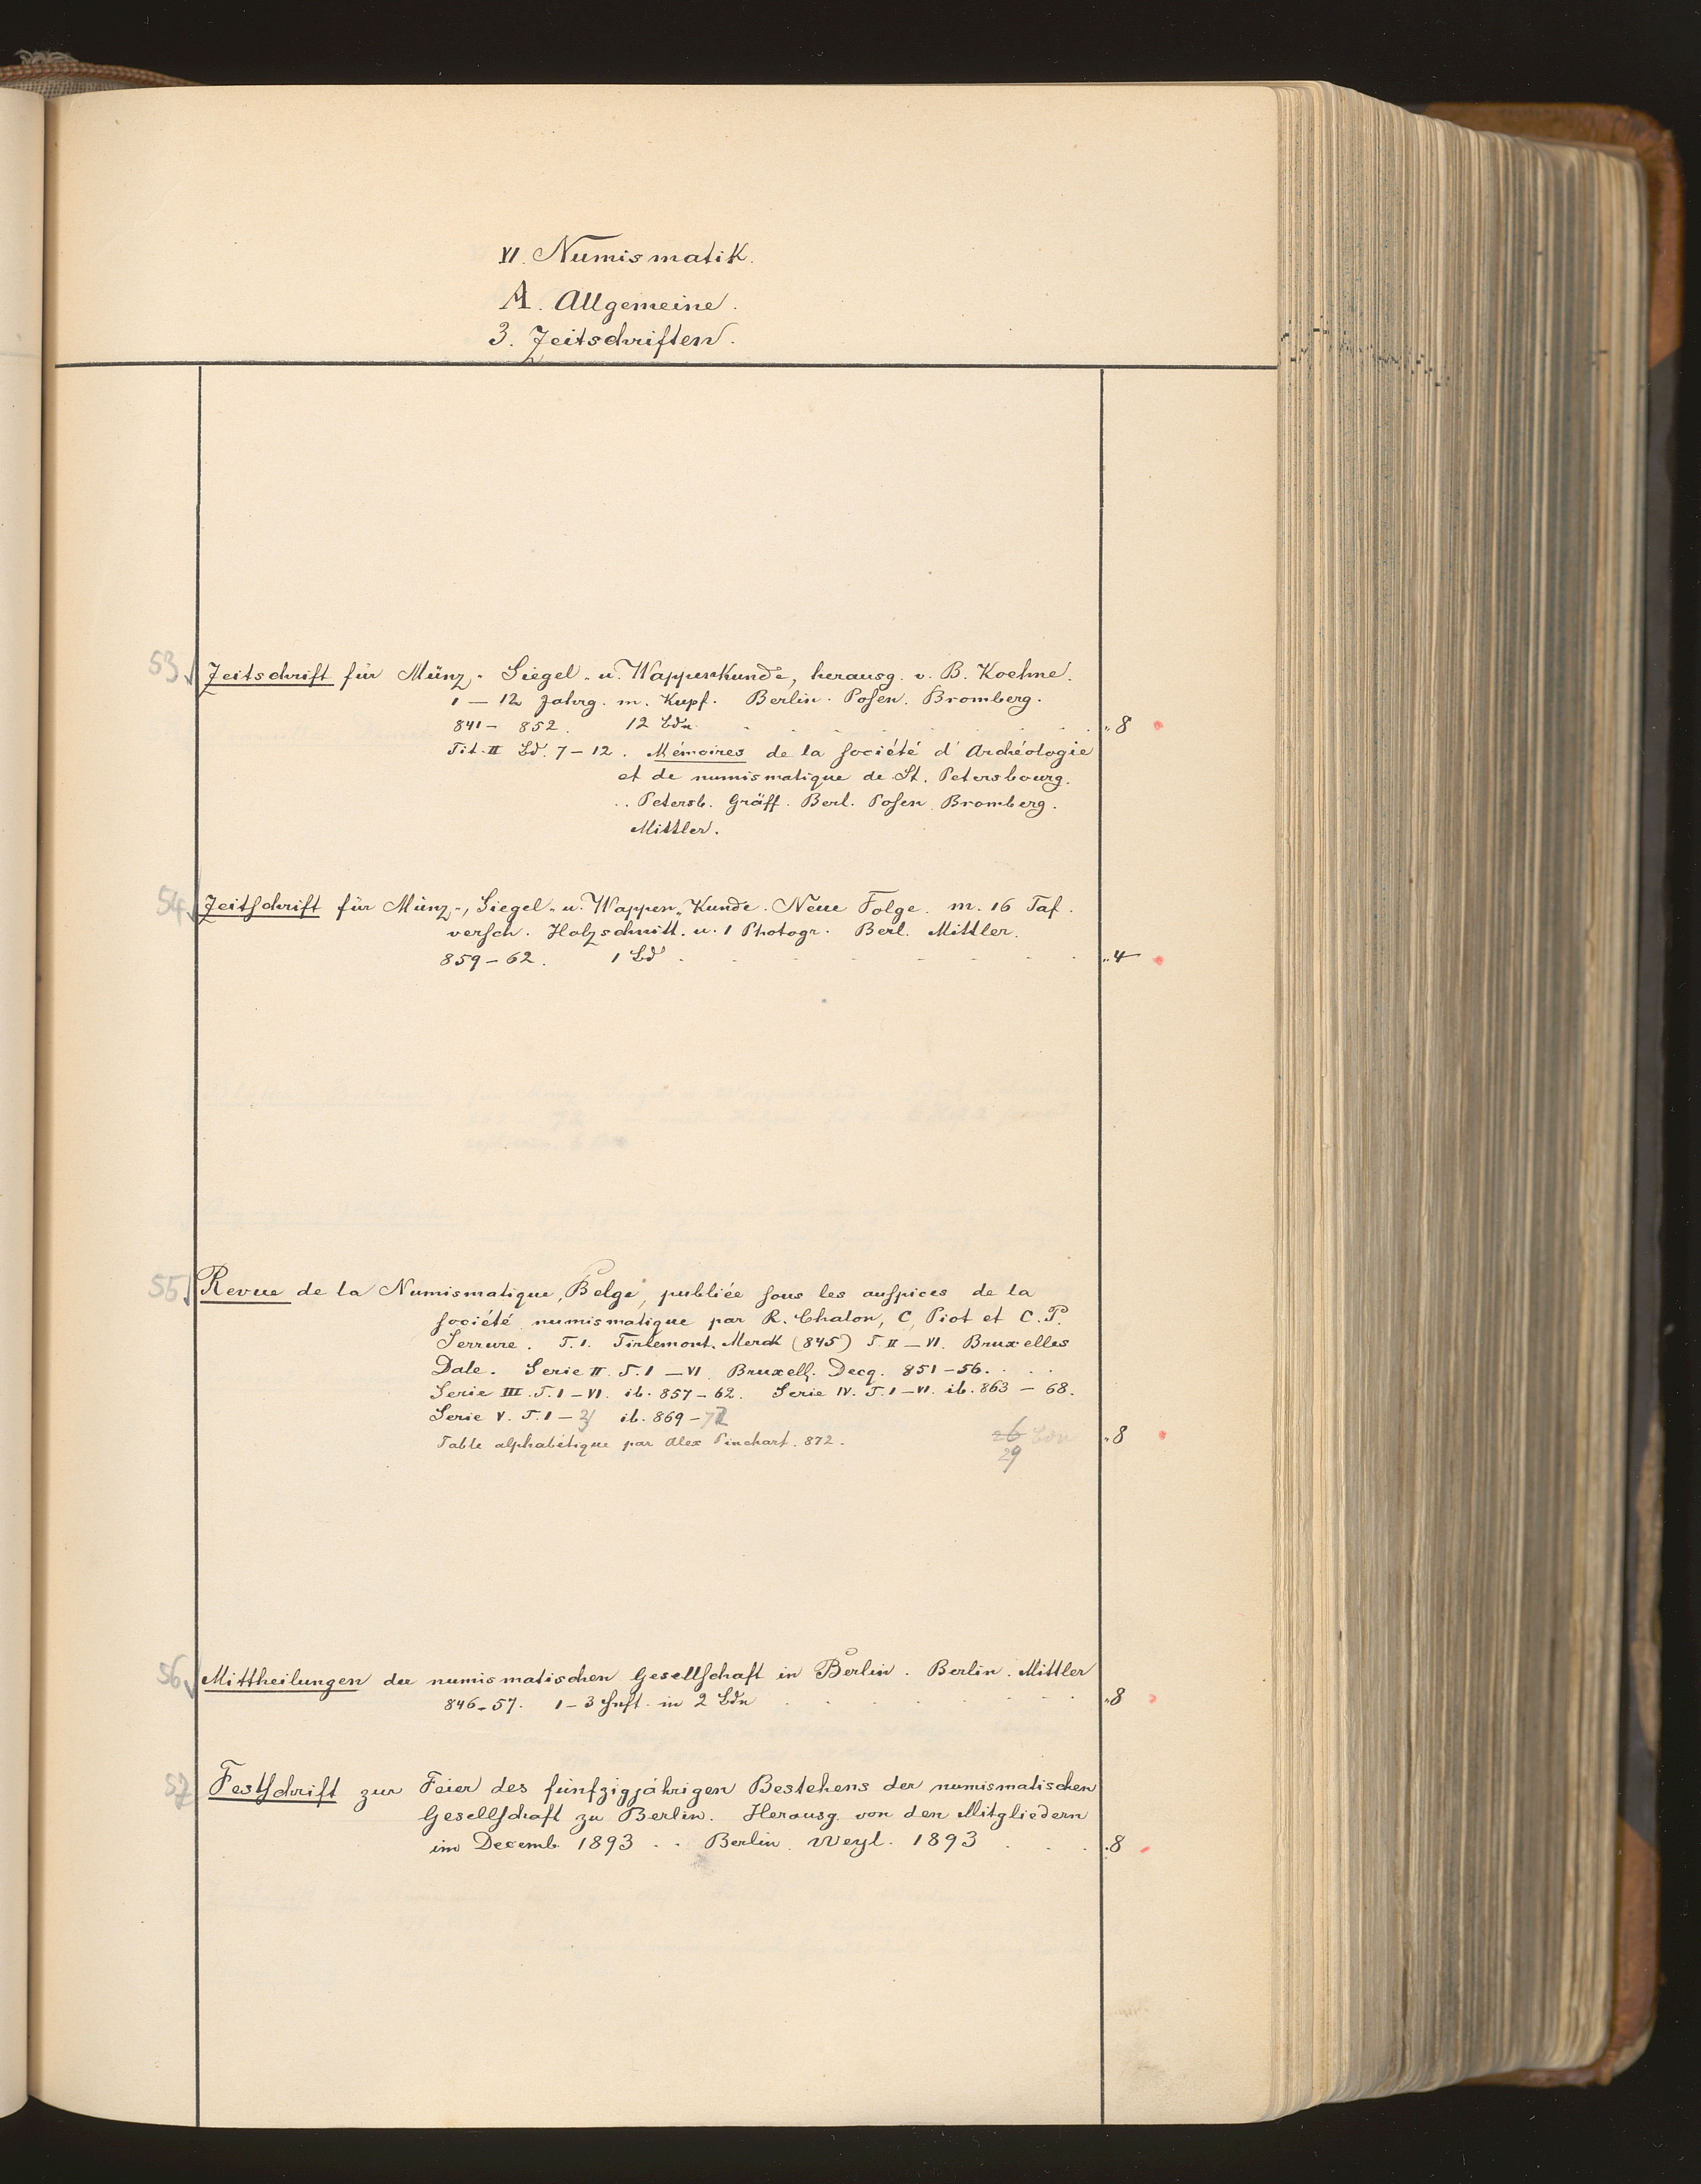 VI. Numismatik.
A. Allgemeine.
3. Zeitschriften.
53 Zeitschrift für Münz- Siegel- u. Wappenkunde, herausg. v. B. Koehne.
1 — 12 Jahrg. m. Kupf. Berlin. Posen. Bromberg.
841 — 852. 12 Bdn . . . . . . . „8
Tit. II Bd. 7 — 12. Mémoires de la société d'Archéologie
et de numismatique de St. Petersbourg.
.. Petersb. Gräff. Berl. Posen Bromberg.
Mittler.
54 Zeitschrift für Münz-, Siegel- u. Wappen-Kunde. Neue Folge. m. 16 Taf.
versch. Holzschnitt. u. 1 Photogr. Berl. Mittler.
859 — 62. 1 Bd . . . . . . . „4
55 Revue de la Numismatique, Belge, publiée sous les auspices de la
société numismatique par R. Chalon, C. Piot et C. P.
Serrure. T. I. Tirlemont. Merck (845) T. II — VI. Bruxelles
Dale. Serie II T. I — VI Bruxell. Decq. 851 — 56. . .
Serie III. T. I — VI. ib. 857 — 62. Serie IV. T. I — VI. ib. 863 — 68.
Serie V. T. I — ib. 869 — 72
Table alphabétique par Alex Pinchart. 872. 26 Bdn „8
29
56 Mittheilungen der numismatischen Gesellschaft in Berlin. Berlin. Mittler
846 — 57. 1 — 3 Heft. in 2 Bdn . . . . . . „8
57 Festschrift zur Feier des fünfzigjährigen Bestehens der numismatischen
Gesellschaft zu Berlin. Herausg. von den Mitgliedern
im Decemb 1893 . . Berlin. Weyl. 1893 . . . .8